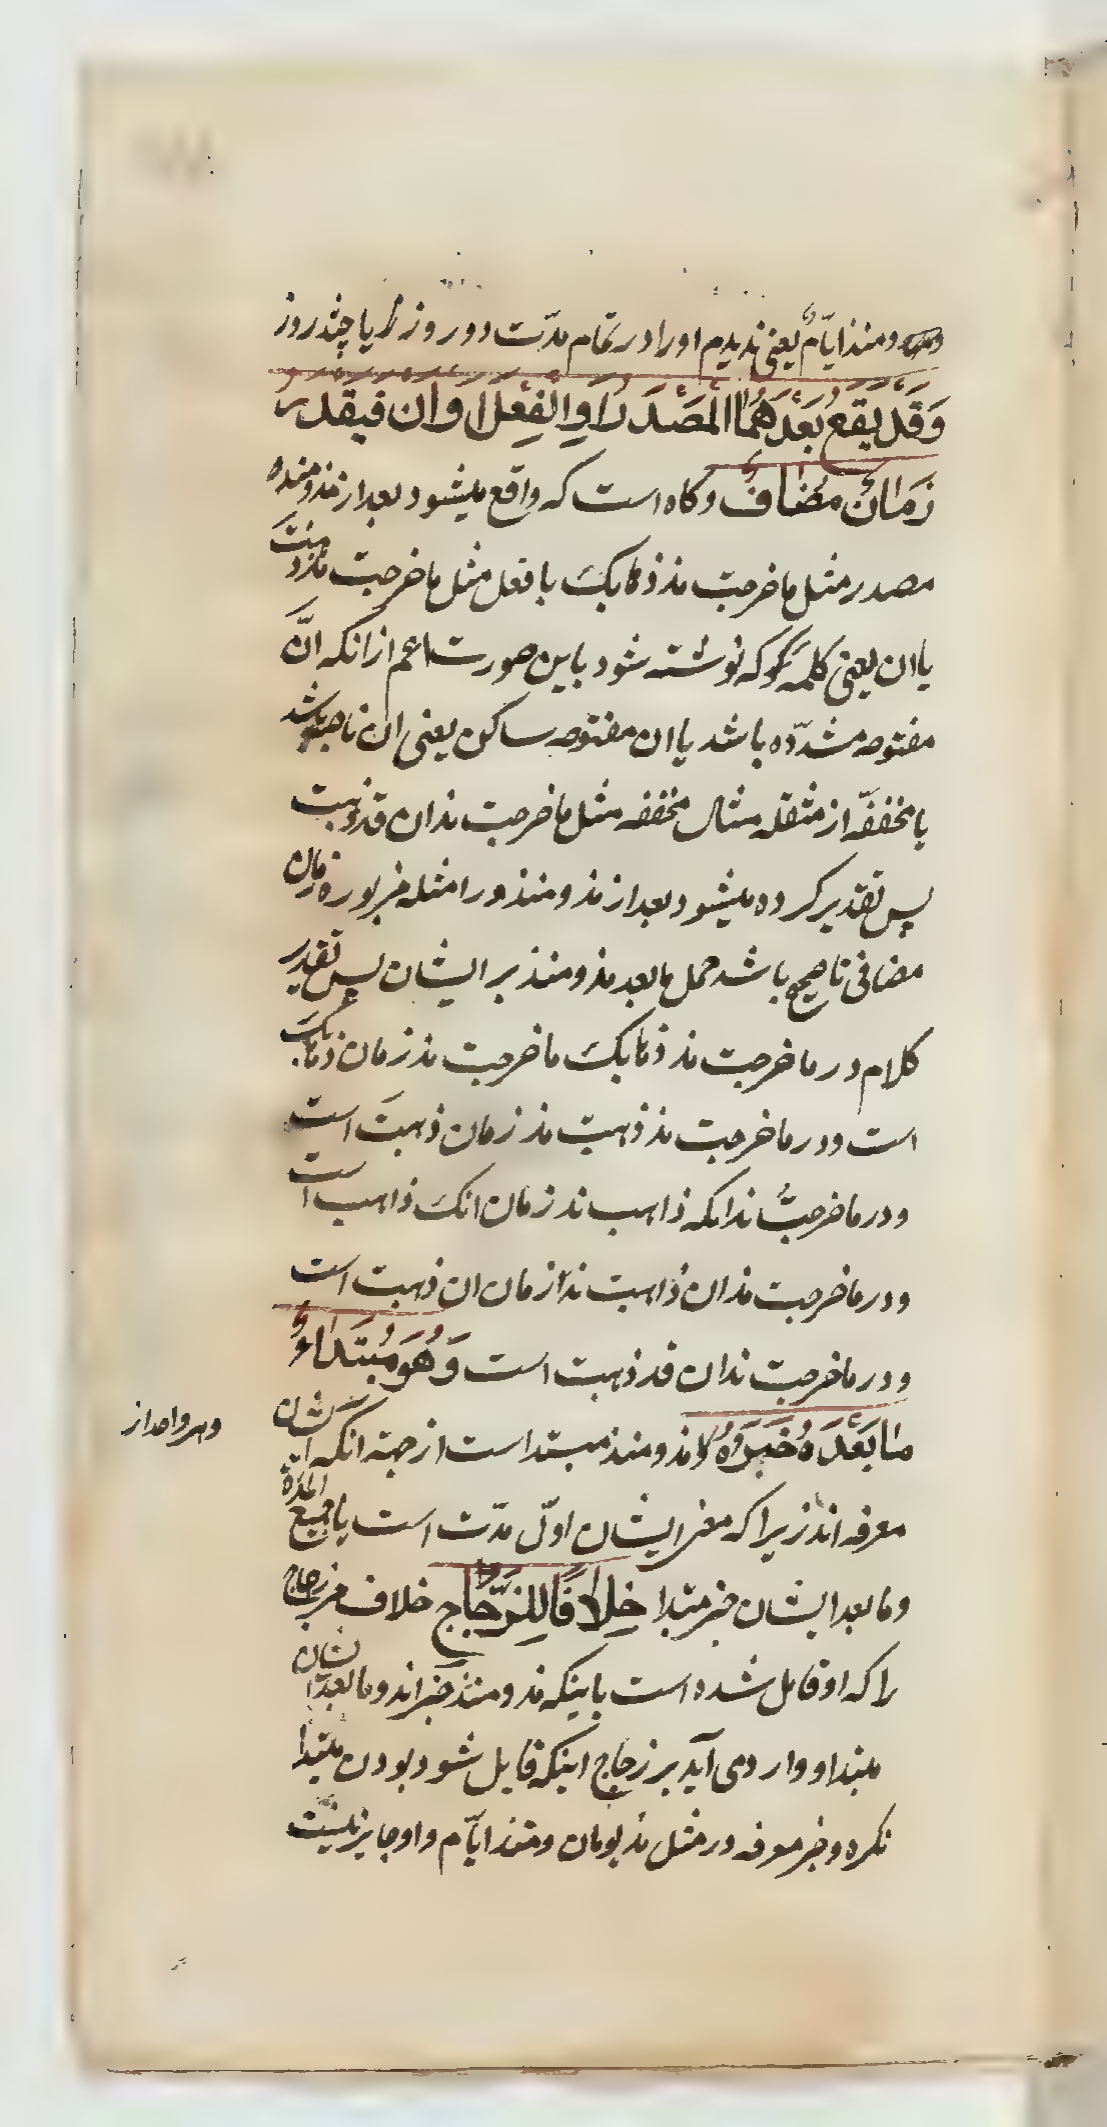 ومنذ ایّام یعنی ندیدم او را در تمام مدّت دو روز یا چند روز
وَقَدْ یَقَعُ بَعْدَهُمَا الْمَصْدَرُ اَوِ الْفِعْلُ اَوْ اَنْ فَیُقَدَّرُ
زَمَانٌ مُضَافٌ وگاه است که واقع میشود بعد از مذ و منذ
مصدر مثل ما خرجت مذ ذهابک یا فعل مثل ما خرجت مذ ذهبتَ
یا ان یعنی کلمهٔ که نوشته شود باین صورت اعم از انکه انَّ
مفتوحه مشدّده باشد یا ان مفتوحه ساکن یعنی ان ناصبه باشد
یا مخففّه از مثقله مثال مخففه مثل ما خرجت مذ ان قد ذهبت
پس تقدیر کرده میشود بعد از مذ و منذ در امثله مزبوره زمان
مضافی تا صحیح باشد حمل ما بعد مذ و منذ بر ایشان پس تقدیر
کلام در ما خرجت مذ ذهابک ما خرجت مذ زمان ذهابک
است و در ما خرجت مذ ذهبت مذ زمان ذهبتَ است
و در ما خرجتُ مذ انکه ذاهب مذ زمان انکَ ذاهب است
و در ما خرجت مذ ان ذهبت مذ زمان ان ذهبت است
و در ما خرجت مذ ان قد ذهبت است وَهُوَ مُبْتَدَاءٌ
مَا بَعْدَهُ خَبَرُهُ مذ و منذ مبتداست از جهة انکه ایشان
وهر واحد از
معرفه اند زیرا که معنی ایشان اوّل مدّت است یا جمیع المدّة
و ما بعد ایشان خبر مبتدا خِلَافًا لِلزَّجَّاجِ خلاف مر زجاج
را که او قایل شده است باینکه مذ و منذ خبراند و ما بعد ایشان
مبتدا و وارد می آید بر زجاج اینکه قایل شود ببودن مبتدا
نکره و خبر معرفه در مثل مذ یومان و منذ ایّام و او جایز نیست